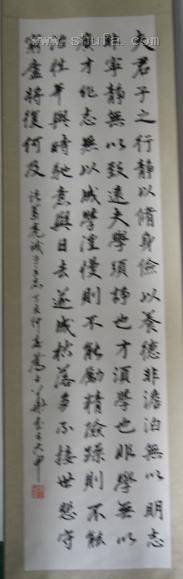 www.shufa.com
夫君子之行靜以脩身儉以養德非澹泊無以明志
非寧靜無以致遠夫學須靜也才須學也非學無以
廣才非志無以成學淫慢則不能勵精險躁則不能
治性年與時馳意與日去遂成枯落多不接世悲守
窮廬將復何及 諸葛亮誡子書 丁亥仲春